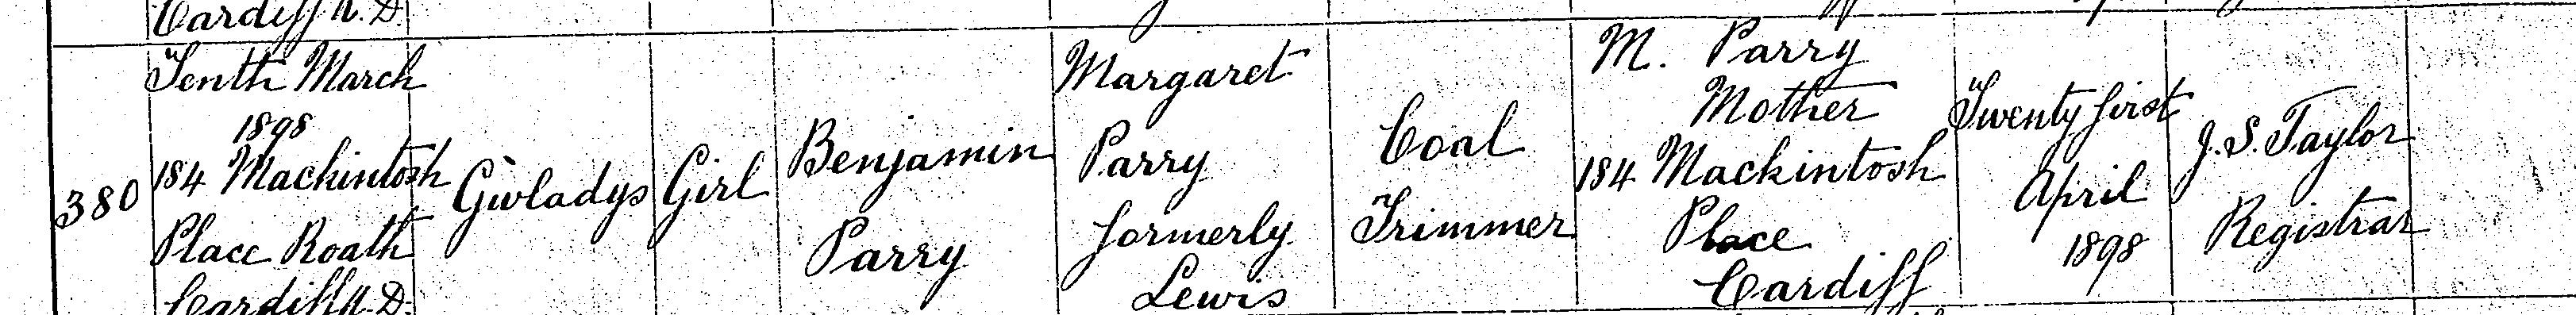 Cardiff U.D.
380
Tenth March
1898
184 Mackintosh
Place Roath
Cardiff U.D.
Gwladys
Girl
Benjamin
Parry
Margaret
Parry
formerly
Lewis
Coal
Trimmer
M. Parry
Mother
184 Mackintosh
Place
Cardiff
Twenty first
April
1898
J. S. Taylor
Registrar